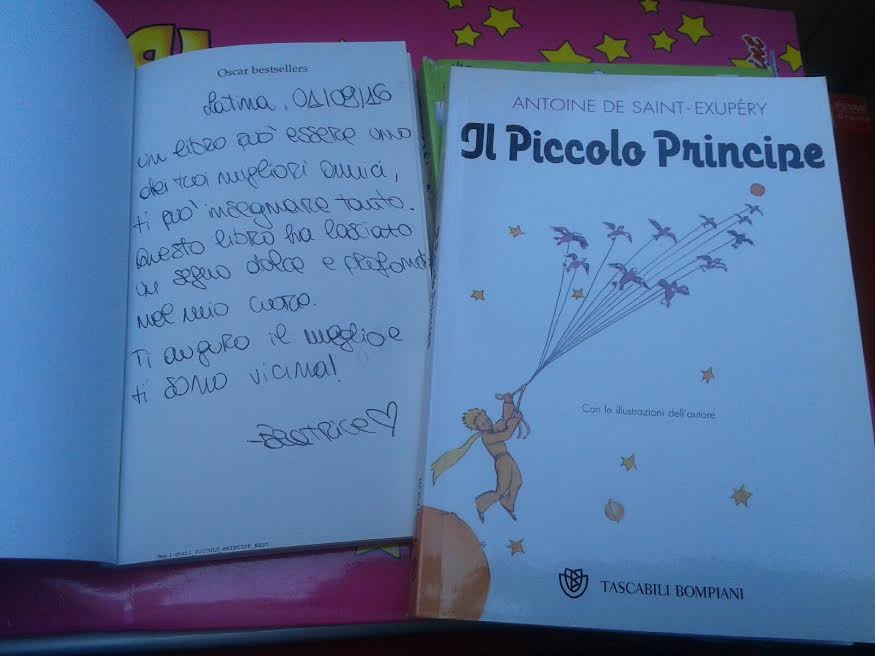 Oscar bestsellers
Latina, 01/09/16
un libro può essere uno
dei tuoi migliori amici,
ti può insegnare tanto.
Questo libro ha lasciato
un segno dolce e profondo
nel mio cuore.
Ti auguro il meglio e
ti sono vicina!
-Beatrice♡
ANTOINE DE SAINT-EXUPÉRY
Il Piccolo Principe
Con le illustrazioni dell'autore
TASCABILI BOMPIANI